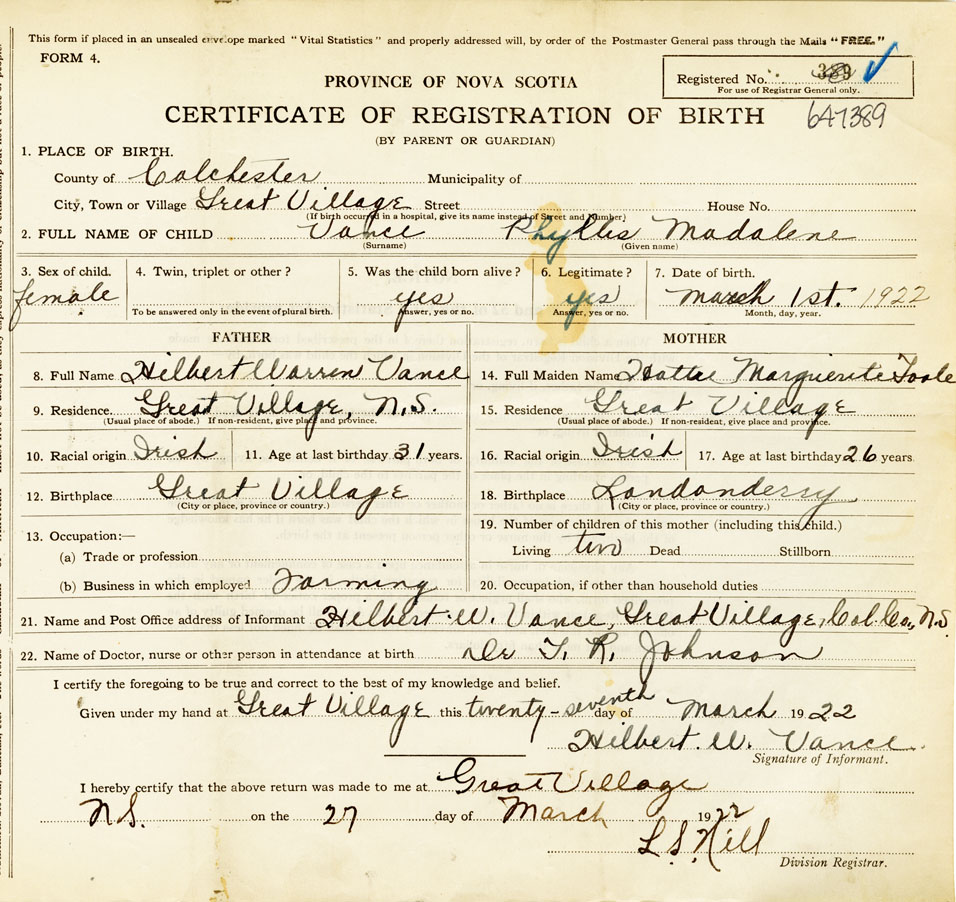 This form if placed in an unsealed envelope marked "Vital Statistics" and properly addressed will, by order of the Postmaster General pass through the Mails "FREE."
FORM 4.
Registered No. 389
For use of Registrar General only.
PROVINCE OF NOVA SCOTIA
CERTIFICATE OF REGISTRATION OF BIRTH 647389
(BY PARENT OR GUARDIAN)
1. PLACE OF BIRTH.
County of Colchester Municipality of
City, Town or Village Great Village Street House No.
(If birth occurred in a hospital, give its name instead of Street and Number)
2. FULL NAME OF CHILD Vance Phyllis Madalene
(Surname) (Given name)
3. Sex of child. 4. Twin, triplet or other? 5. Was the child born alive? 6. Legitimate? 7. Date of birth.
female yes yes March 1st. 1922
To be answered only in the event of plural birth. Answer, yes or no. Answer, yes or no. Month, day, year.
FATHER MOTHER
8. Full Name Hilbert Warren Vance 14. Full Maiden Name Hattie Marguerite Toole
9. Residence. Great Village, N.S. 15. Residence Great Village
(Usual place of abode.) If non-resident, give place and province. (Usual place of abode.) If non-resident, give place and province.
10. Racial origin Irish 11. Age at last birthday 31 years. 16. Racial origin Irish 17. Age at last birthday 26 years
12. Birthplace Great Village 18. Birthplace Londonderry
(City or place, province or country.) (City or place, province or country.)
19. Number of children of this mother (including this child.)
13. Occupation:—
(a) Trade or profession Living two Dead Stillborn
(b) Business in which employed Farming 20. Occupation, if other than household duties
21. Name and Post Office address of Informant Hilbert W. Vance, Great Village, Col. Co., N.S.
22. Name of Doctor, nurse or other person in attendance at birth Dr T. R. Johnson
I certify the foregoing to be true and correct to the best of my knowledge and belief.
Given under my hand at Great Village this twenty-seventh day of March 1922
Hilbert. W. Vance.
Signature of Informant.
I hereby certify that the above return was made to me at Great Village
N.S. on the 27 day of March 1922
L. S. Hill
Division Registrar.